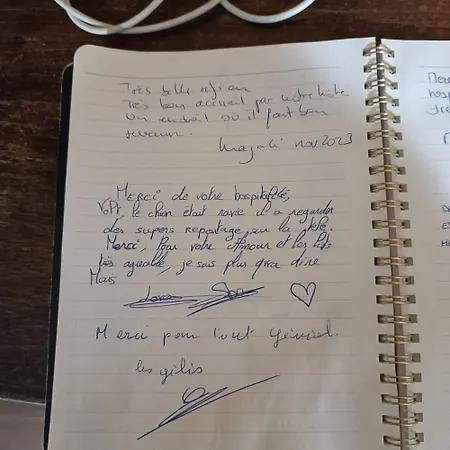 Très belle région
Très bon accueil par notre hôte
Un endroit où il fait bon
revenir.
Magali nov 2023
MERCI de votre hospitalité,
le chien était ravie d'a regarder
des supers reportage sur la télé.
Merci, Pour votre humour et les
très agréable, je sais plus qua dire
Mais
Merci pour tout Gérard.
les gilis
Merci
hosp
tré